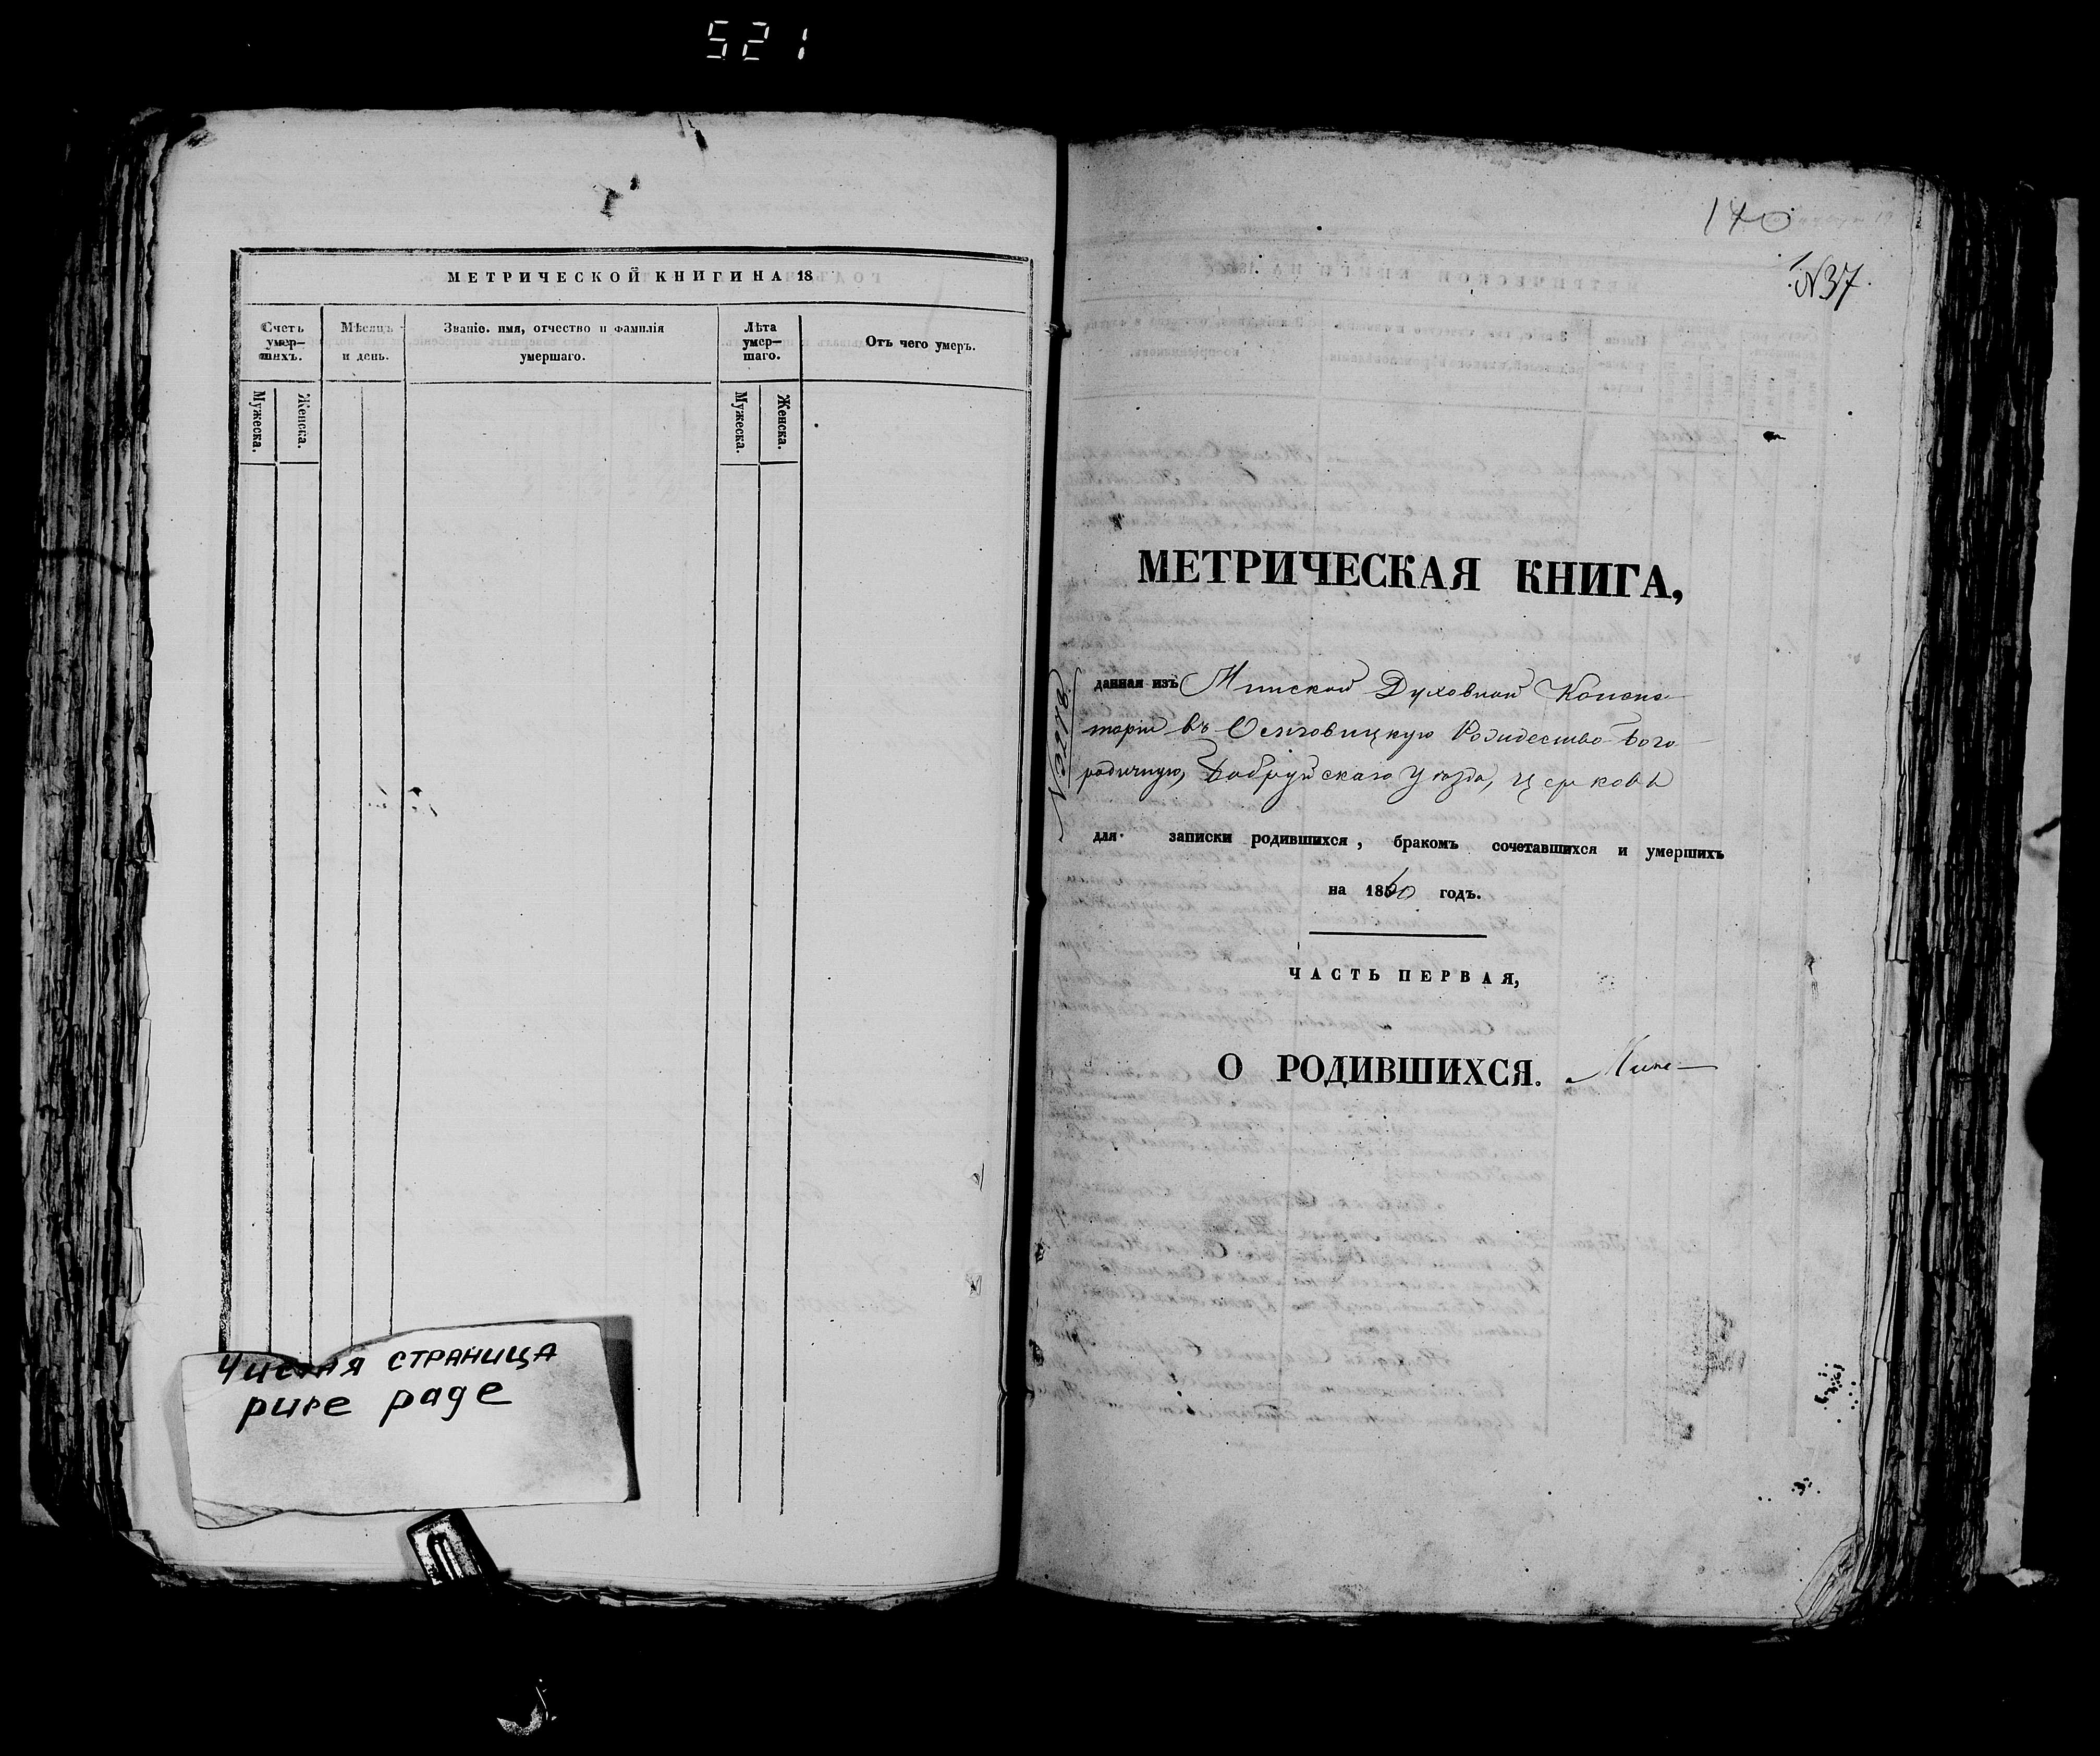 521
МЕТРИЧЕСКОЙ КНИГИ НА 18
Счетъ умер-шихъ.
Мѣсяцъ и день.
Званіе. имя, отчество и фамилія умершаго.
Лѣта умер-шаго.
Отъ чего умеръ.
Мужеска.
Женска.
Мужеска.
Женска.
Чистая страница
pure page
140
№37.
МЕТРИЧЕСКАЯ КНИГА,
данная изъ Минской Духовной Консис-
торіи въ Рождество-Бого-
родичную, Бобруйскаго Уѣзда, церковь
для записки родившихся, бракомъ сочетавшихся и умершихъ
на 1860 годъ.
ЧАСТЬ ПЕРВАЯ,
О РОДИВШИХСЯ.